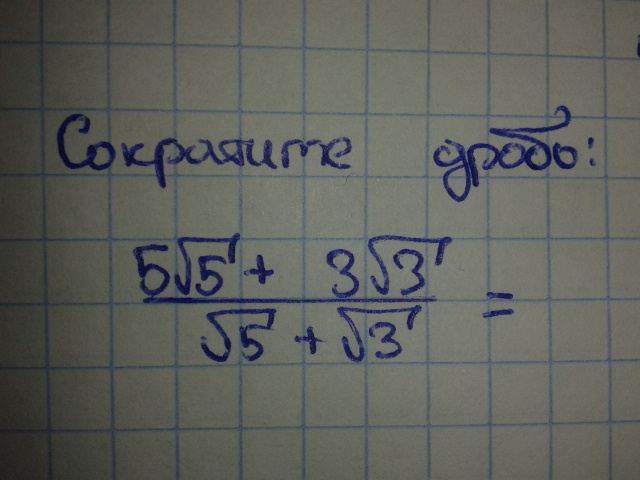 Сократите дробь:
5√5 + 3√3
√5 + √3
=